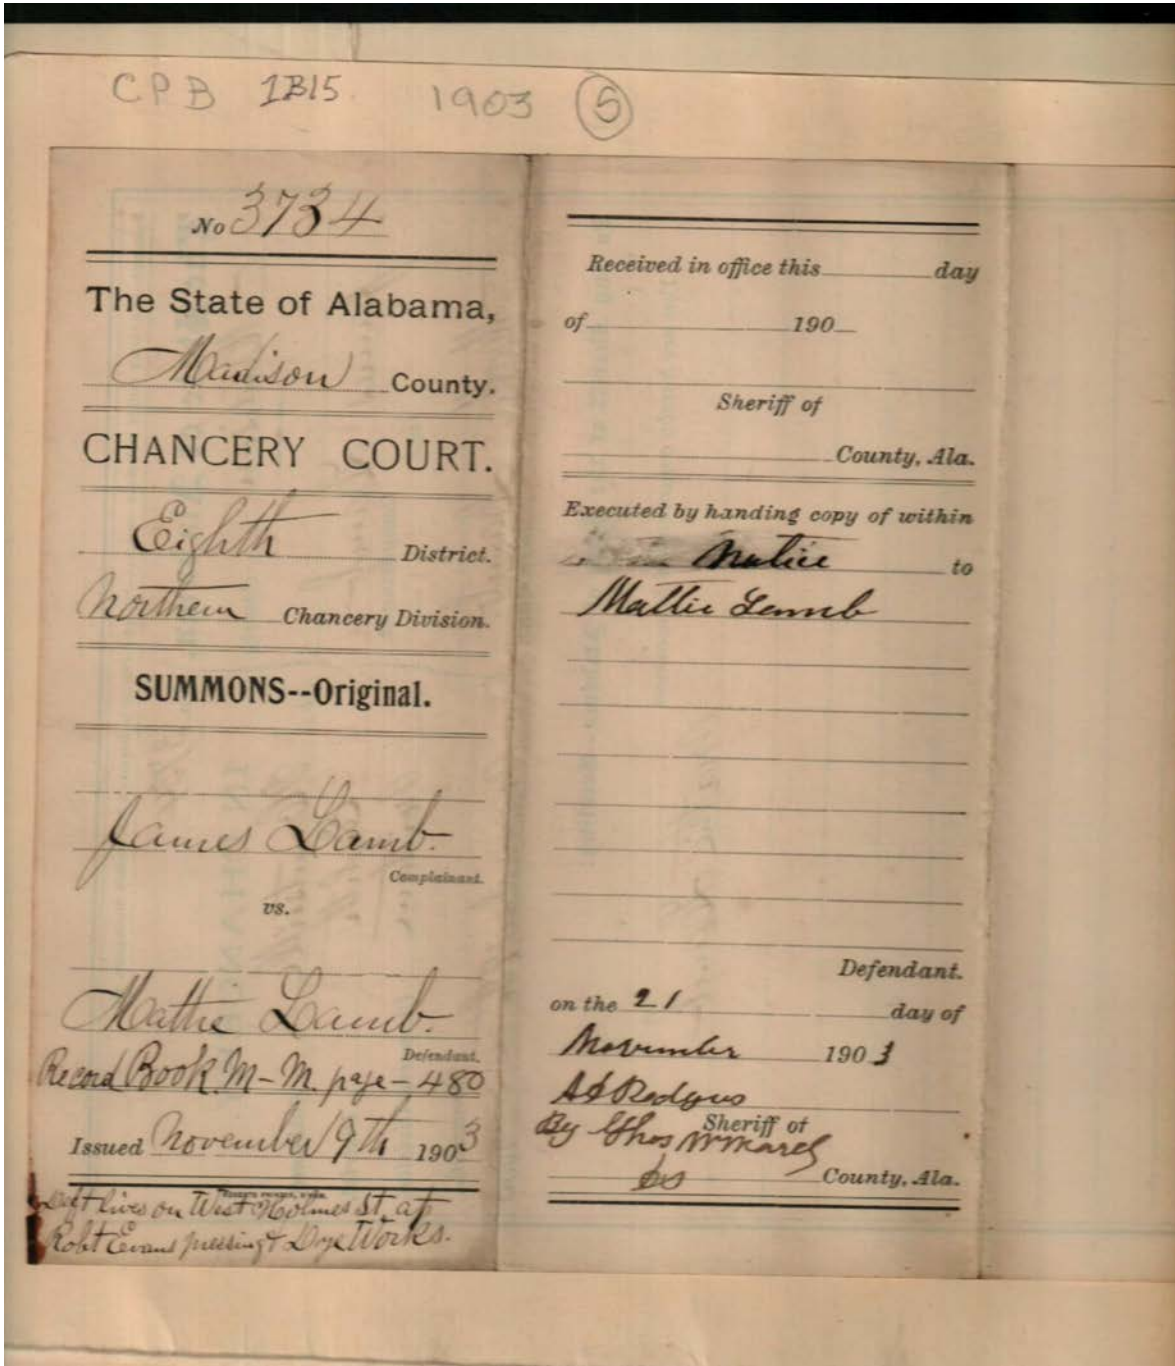 CPB 1B15 1903 5
No 3734
The State of Alabama,
Madison County.
CHANCERY COURT.
Eighth District.
Northern Chancery Division.
SUMMONS--Original.
James Lamb.
Complainant.
vs.
Mattie Lamb.
Defendant.
Record Book M-M. page-480
Issued November 19th 1903
Deft lives on West Holmes St. at
Robt Evans pressing & Dye Works.
Received in office this day
of 190
Sheriff of
County, Ala.
Executed by handing copy of within
Notice to
Mattie Lamb
Defendant.
on the 21 day of
November 1903
Rodgers
Sheriff of
By Thos W
DS County, Ala.